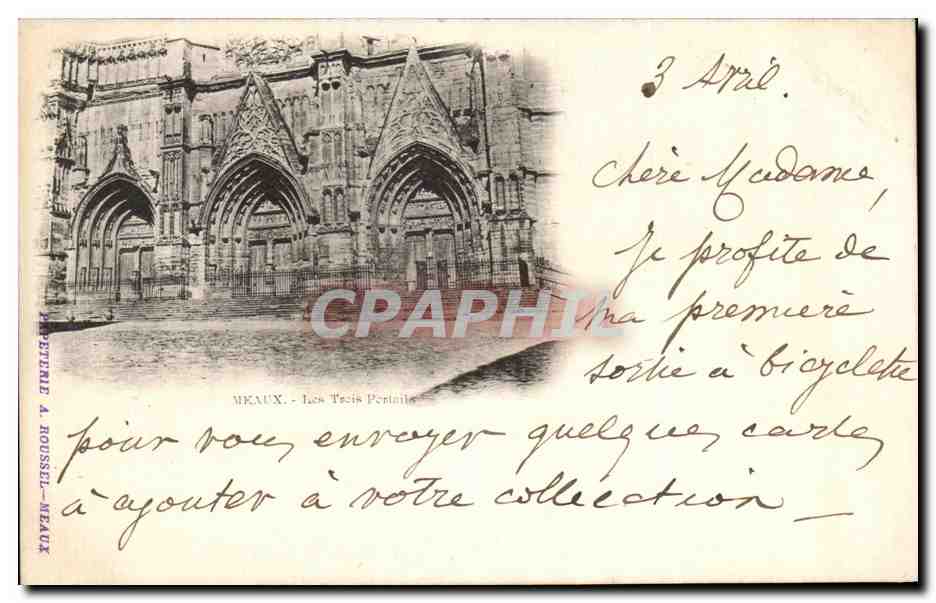 3 Avril.
Chère Madame,
Je profite de
ma première
sortie à bicyclette
pour vous envoyer quelques cartes
à ajouter à votre collection —
MEAUX. - Les Trois Portails
PAPETERIE A. ROUSSEL—MEAUX
CPAPHIL